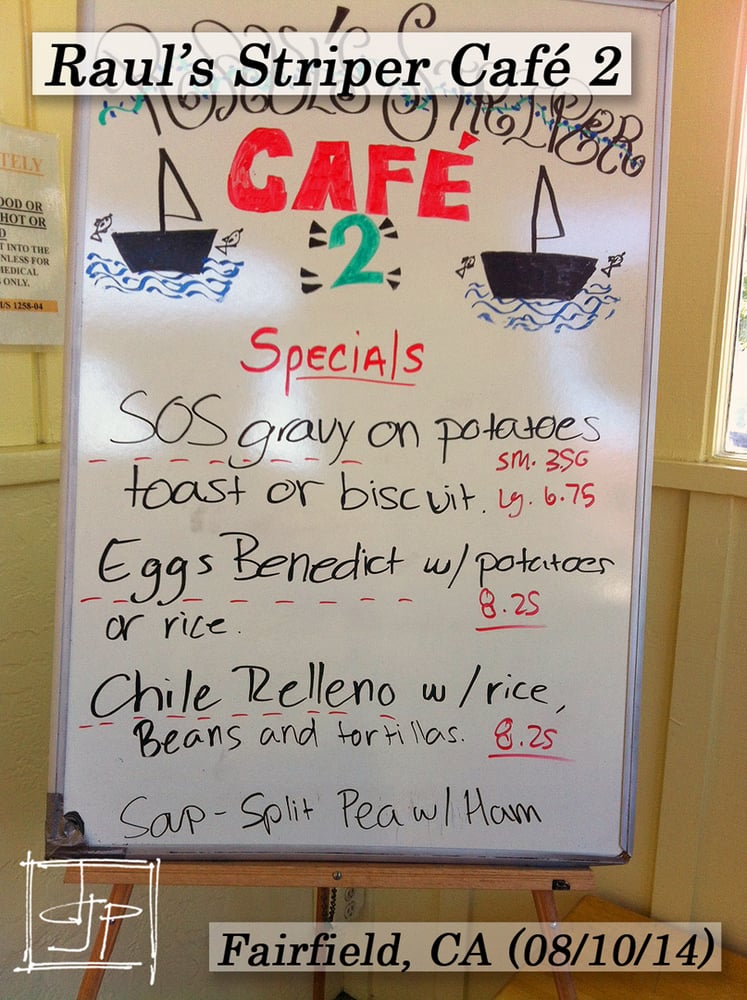 Raul's Striper Café 2
Raul's Striper
CAFÉ
2
TELY
OOD OR
HOT OR
D
T INTO THE
NLESS FOR
MEDICAL
S ONLY.
/S 1258-04
Specials
SOS gravy on potatoes
sm. 3.50
toast or biscuit. Lg. 6.75
Eggs Benedict w/potatoes
8.25
or rice.
Chile Relleno w/rice,
Beans and tortillas. 8.25
Soup-Split Pea w/ Ham
JP
Fairfield, CA (08/10/14)